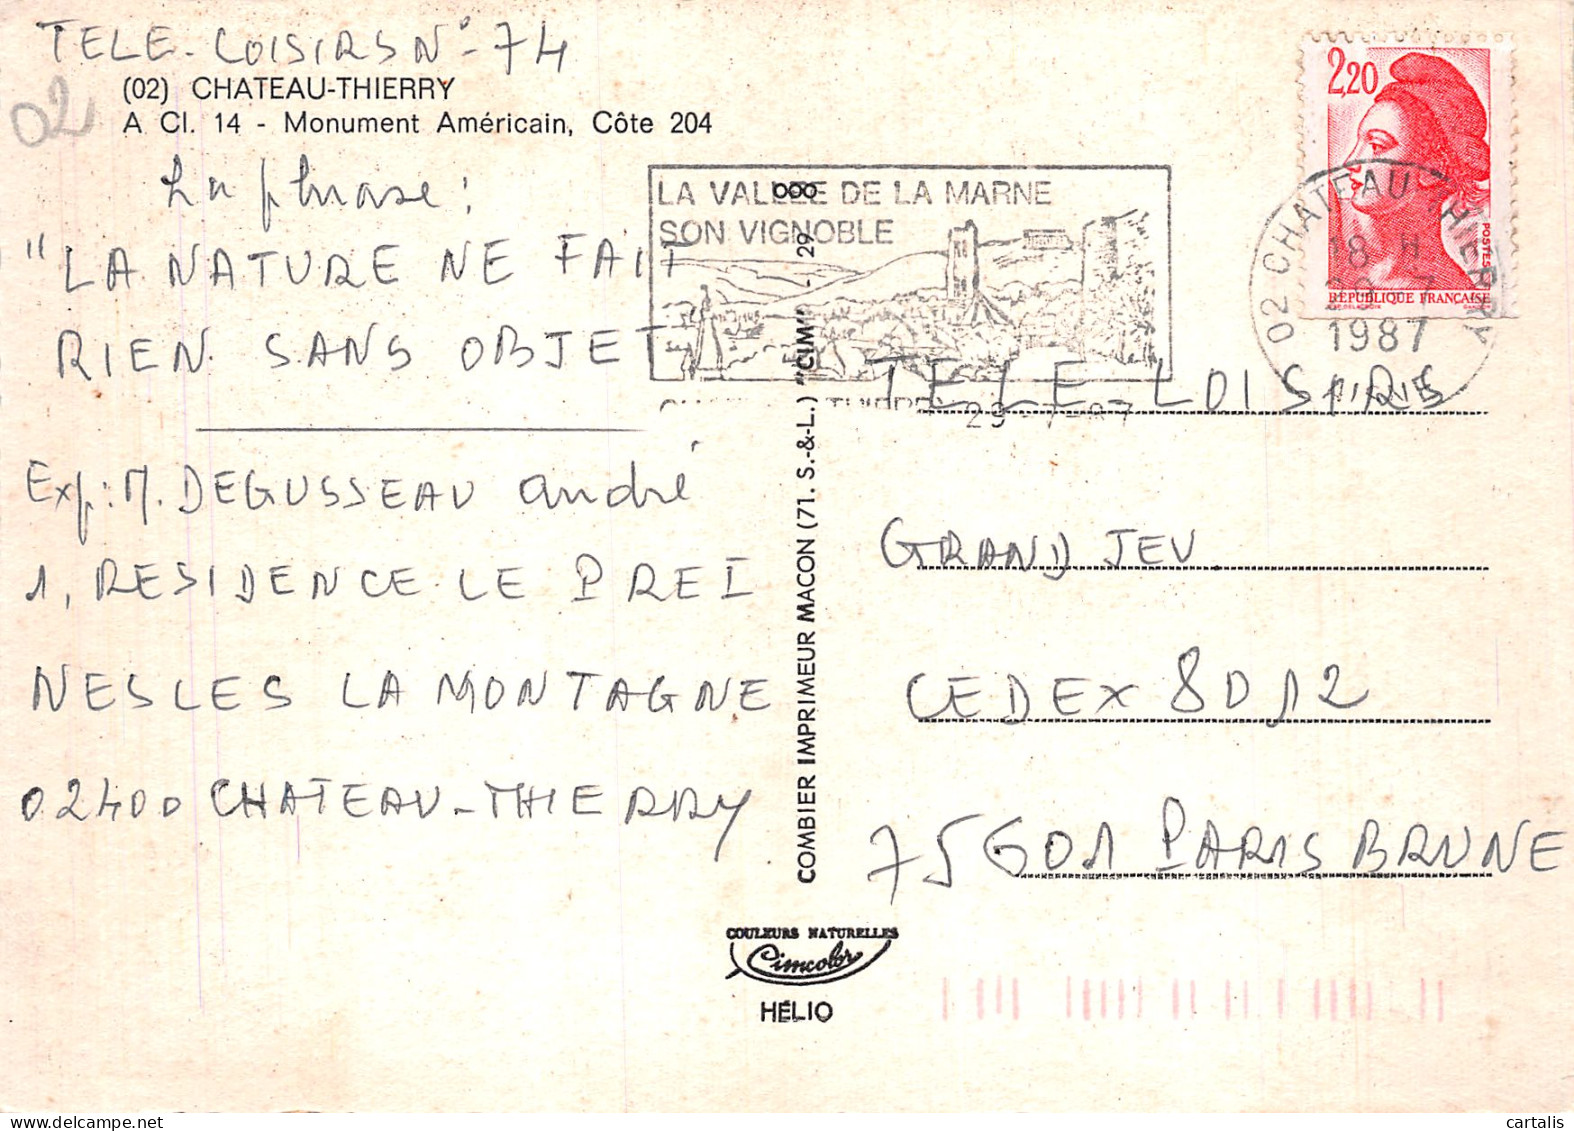 TELE-LOISIRS N°-74
(02) CHATEAU-THIERRY
02
A Cl. 14 - Monument Américain, Côte 204
La phrase :
"LA NATURE NE FAIT
RIEN SANS OBJET
Exp: M. DEGUSSEAU André
1, RESIDENCE LE PREI
NESLES LA MONTAGNE
02400 CHATEAU-THIERRY
LA VALLEE DE LA MARNE
SON VIGNOBLE
29-7-87
COMBIER IMPRIMEUR MACON (71. S.-&-L.) "CIM" - 29
2,20
POSTES
RÉPUBLIQUE FRANÇAISE
02 CHATEAU THIERRY
18 H
29-7
1987
TELE-LOISIRS
GRAND JEU
CEDEX 8012
75601 PARIS BRUNE
COULEURS NATURELLES
Cimcolor
HÉLIO
cartalis